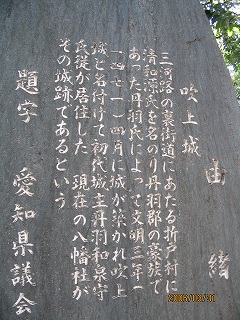 吹上城由緒
三河路の裏街道にあたる折戸村に
清和源氏を名のり丹羽郡の豪族で
あった丹羽氏によって文明三年(
一四七一)四月に城が築かれ吹上
城と名付けて初代城主丹羽和泉守
氏従が居住した 現在の八幡社が
その城跡であるという
題字 愛知県議会